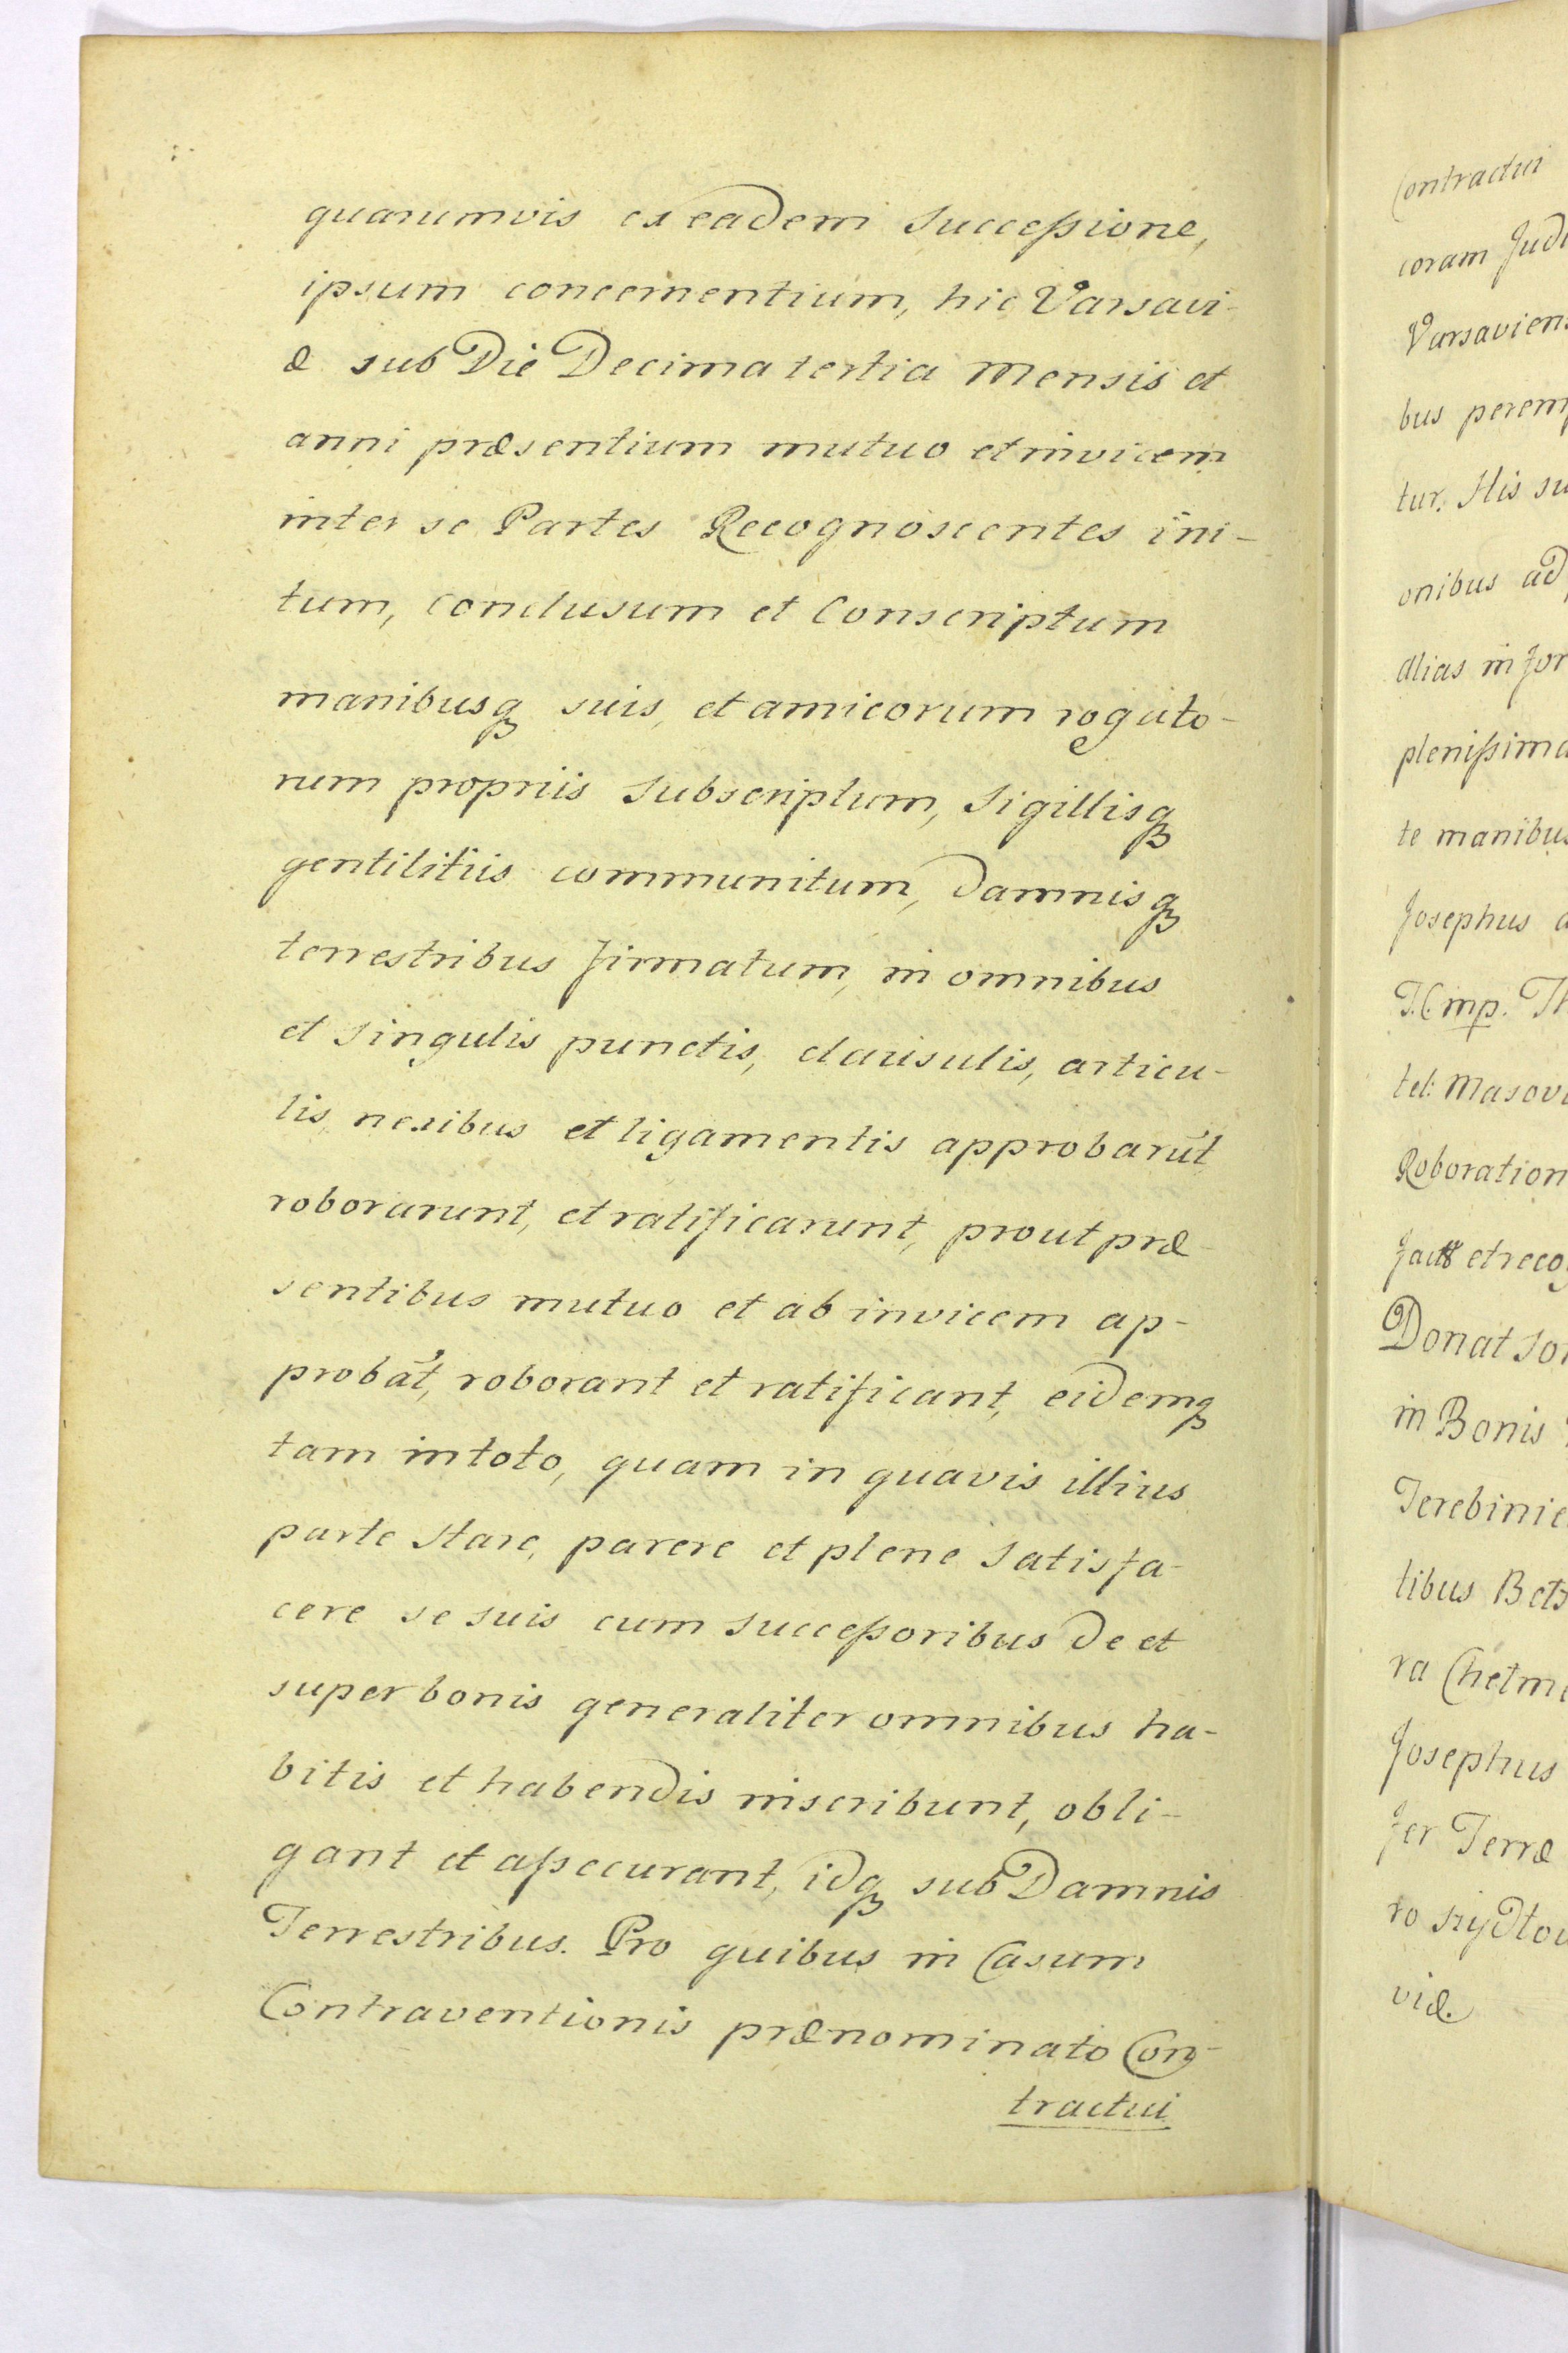 quarumvis ex eadem Successione,
ipsum concernentium, hic Varsavi-
æ sub Die Decima tertia Mensis et
anni præsentium mutuo et invicem
inter se Partes Recognoscentes ini-
tum, conclusum et Conscriptum
manibusq suis, et amicorum rogato-
rum propriis Subscriptum, Sigillisq
gentilitiis communitum, Damnisq
terrestribus firmatum, in omnibus
et Singulis punctis, clausulis, articu-
lis, nexibus et ligamentis approbarūt
roborarunt, et ratificarunt, prout præ-
sentibus mutuo et ab invicem ap-
probāt, roborant et ratificant, eidemq
tam in toto, quam in quavis illius
parte Stare, parere et plene Satisfa-
cere se suis cum Successoribus De et
super bonis generaliter omnibus ha-
bitis et habendis inscribunt, obli-
gant et assecurant, idq sub Damnis
Terrestribus. Pro quibus in Casum
Contraventionis prænominato Con-
tractui
Contractui
coram Judi
Varsaviens
bus peremp
tur. His su
onibus ad
alias in for
plenissima
te manibus
Josephus a
T.C. mp. Th
tel: Masovi
Roboration
et recog
Donat Sor
in Bonis
Terebinie
tibus Betz
ra Chelme
Josephus
fer Terræ
ro szydłow
viæ.